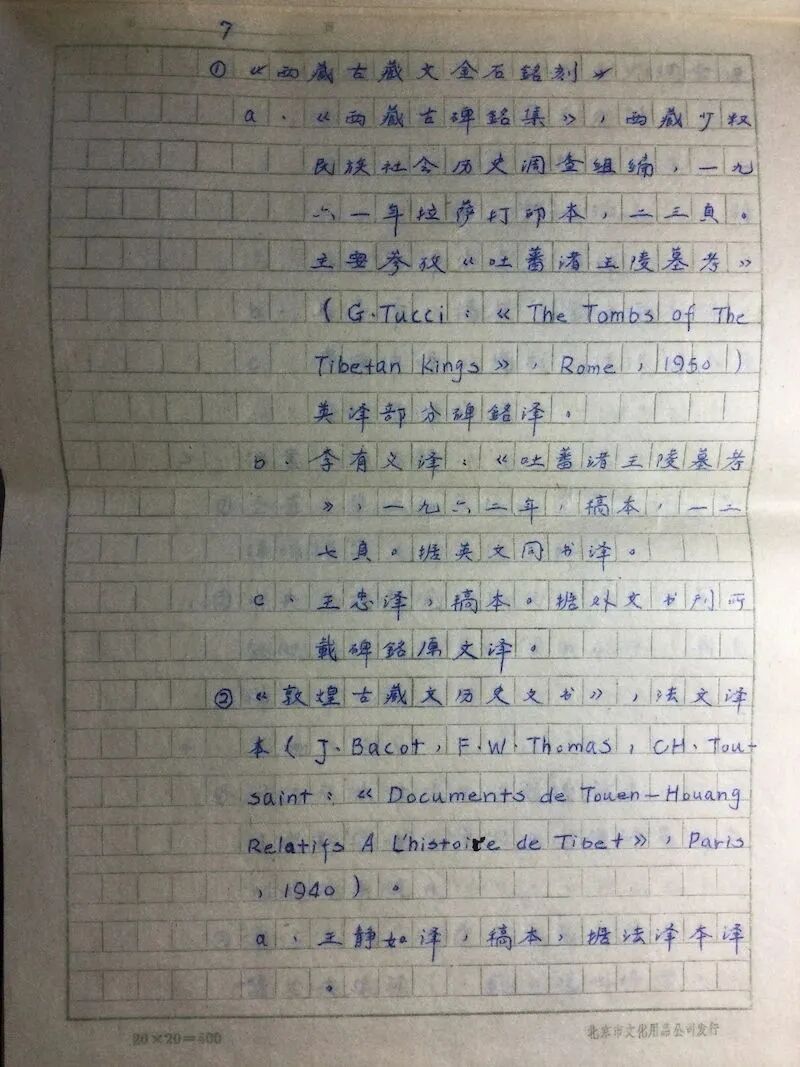 7
① 《西藏古藏文金石銘刻》
a. 《西藏古碑銘集》, 西藏少数
民族社会历史调查组编, 一九
六一年拉萨打印本, 二三頁。
主要参攷《吐蕃诸王陵墓考》
(G.Tucci: 《The Tombs of The
Tibetan Kings》, Rome, 1950)
英译部分碑銘译。
b. 李有义译: 《吐蕃诸王陵墓考
》, 一九六二年, 稿本, 一二
七頁。据英文同书译。
c、王忠译, 稿本。据外文书刊所
载碑銘原文译。
② 《敦煌古藏文历史文书》, 法文译
本(J.Bacot, F.W.Thomas, CH.Tou-
saint: 《Documents de Touen-Houang
Relatifs A L'histoire de Tibet》, Paris
, 1940)。
a、王静如译, 稿本, 据法译本译
。
20×20=400
北京市文化用品公司发行